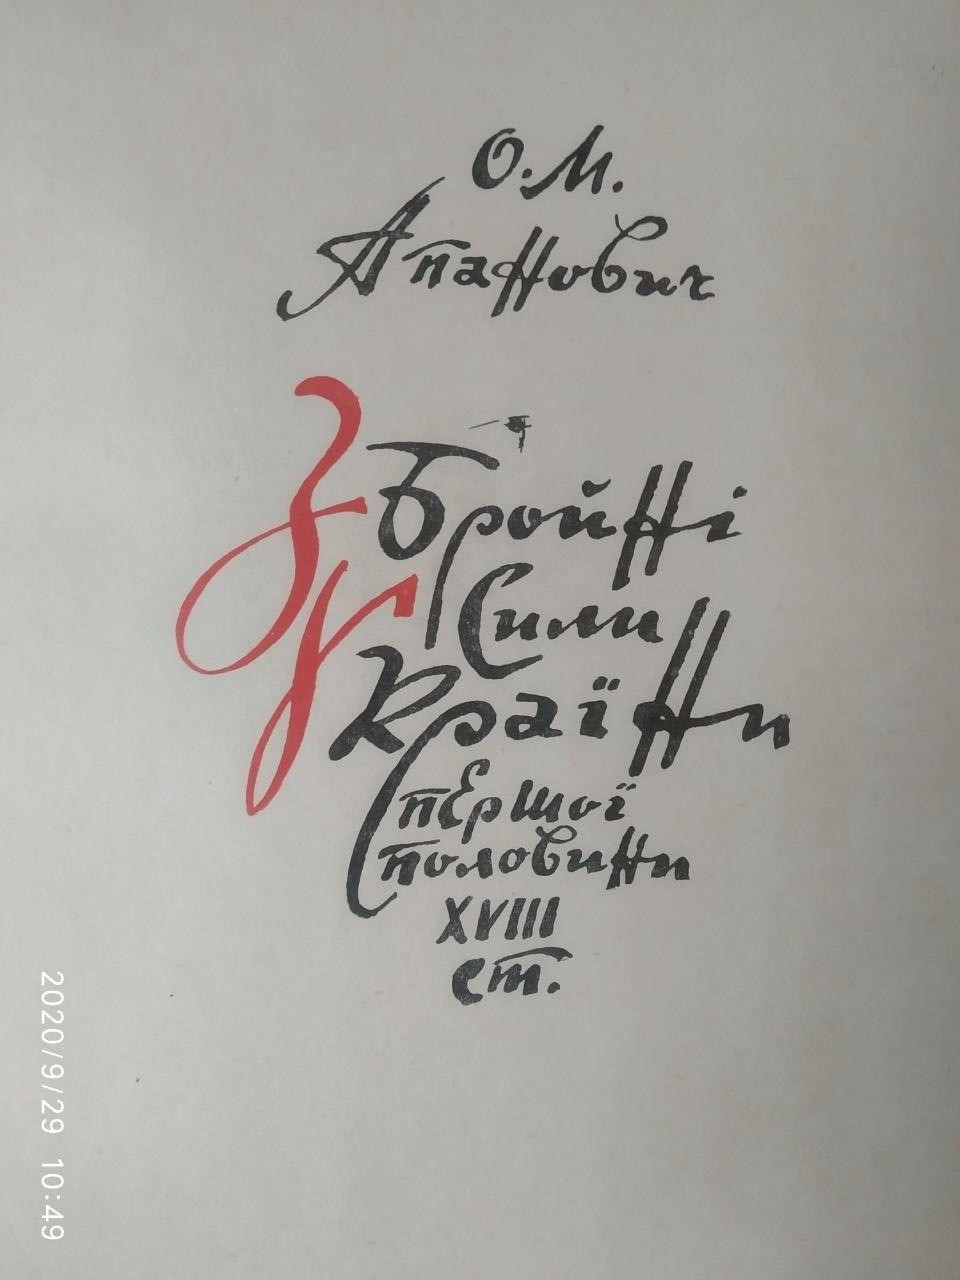 О. М.
Апанович
Збройні
Сили
України
першої
половини
XVIII
ст.
2020/9/29 10:49